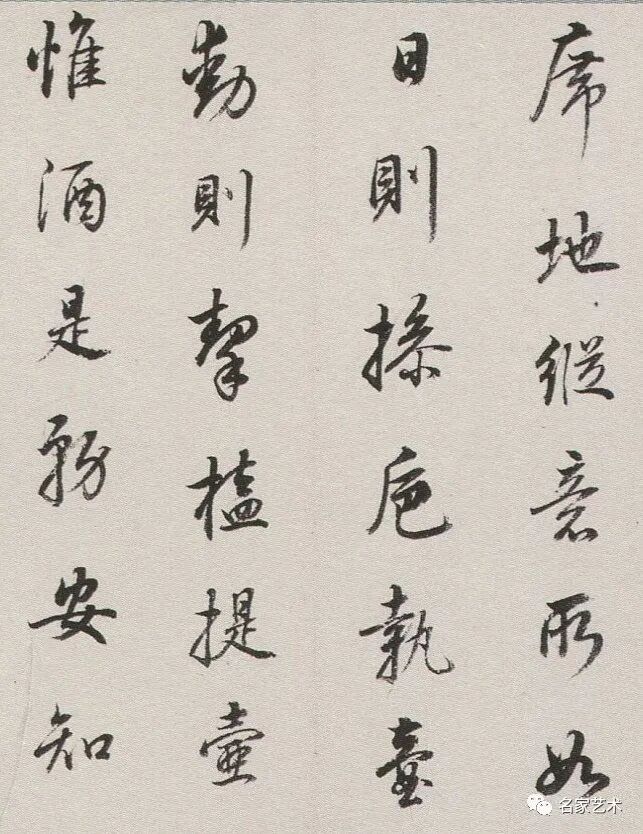 席地縱意所如
日則操卮執臺
動則挈榼提壺
惟酒是務安知
名家艺术